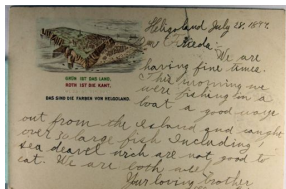 Heligoland July 28, 189
GRÜN IST DAS LAND,
ROTH IST DIE KANT,
DAS SIND DIE FARBEN VON HELGOLAND.
We are
having fine times.
This morning we
were fishing in a
boat a good ways
out from the Island and caught
over 30 large fish Including
sea deavel which are not good to
eat. We are both well
Your loving brother